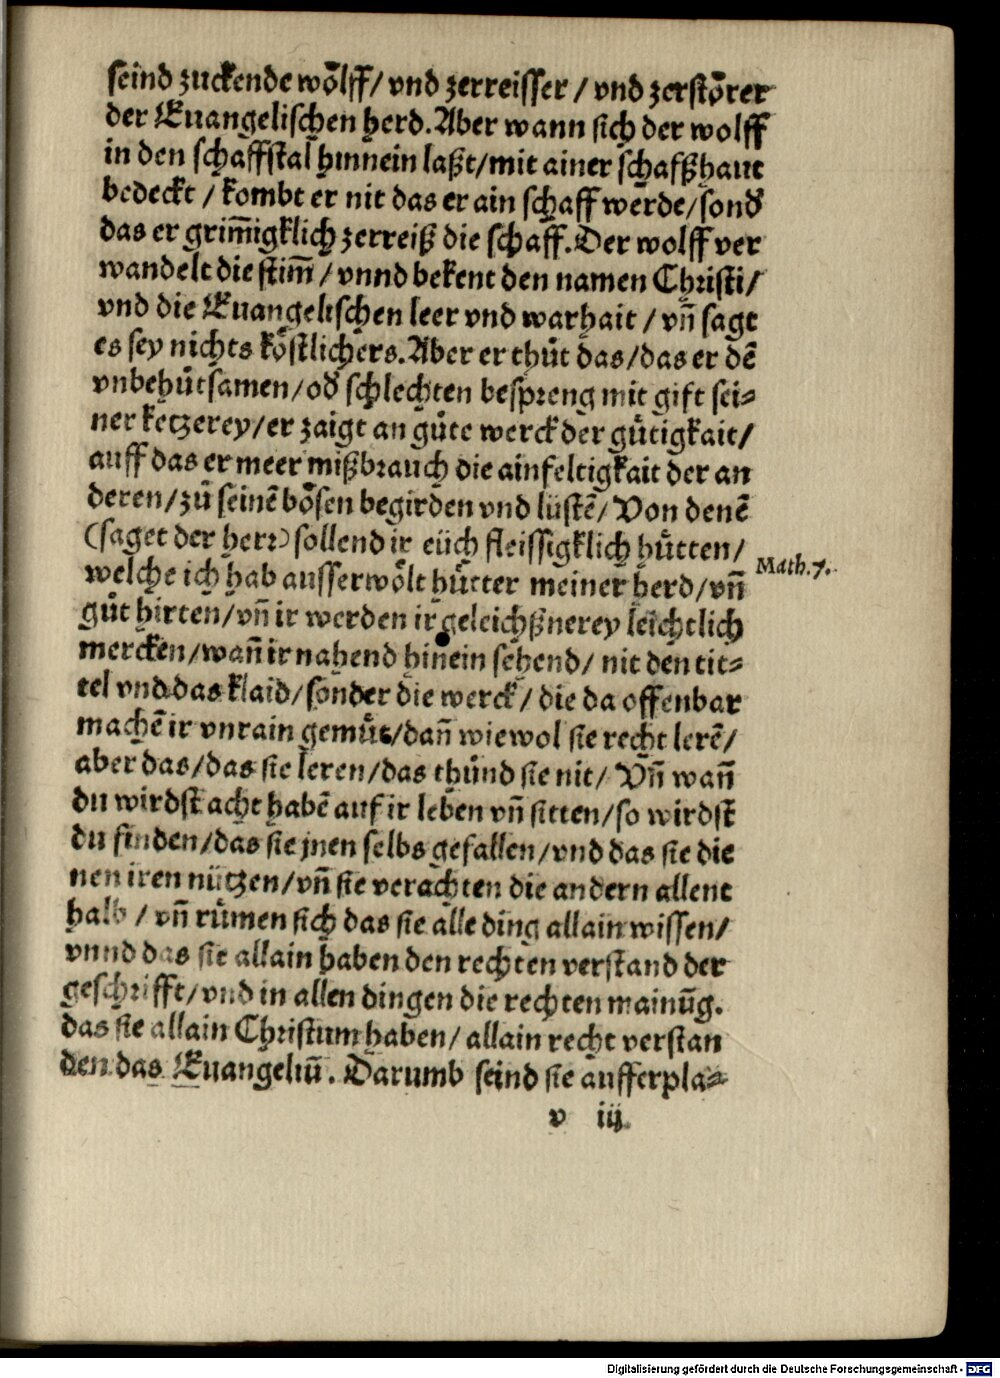 seind zuckende woͤlff/ vnd zerreisser / vnd zerstoͤrer
der Euangelischen herd. Aber wann sich der wolff
in den schaffstal hinnein laßt/mit ainer schafßhaut
bedeckt / kombt er nit das er ain schaff werde/sond̛
das er grim̄igklich zerreiß die schaff. Der wolff ver
wandelt die stim̄ / vnnd bekent den namen Christi/
vnd die Euangelischen leer vnd warhait / vn̄ sagt
es sey nichts koͤstlichers. Aber er thuͦt das/das er dē
vnbehuͤtsamen/od̛ schlechten bespreng mit gift sei⸗
ner ketzerey/er zaigt an guͤte werck der guͤtigkait/
auff das er meer mißbrauch die ainfeltigkait der an
deren/zuͦ seinē boͤsen begirden vnd lüstē/ Von denē
(saget der herr) sollend ir eüch fleissigklich huͤtten/
Math.7.
welche ich hab ausserwoͤlt huͤtter meiner herd/vn̄
guͦt hirten/vn̄ ir werden ir geleichßnerey leichtlich
mercken/wan̄ ir nahend hinein sehend/ nit den tit⸗
tel vnd das klaid/sonder die werck/ die da offenbar
machē ir vnrain gemuͤt/dan̄ wiewol sie recht lerē/
aber das/das sie leren/das thuͦnd sie nit/ Vn̄ wan̄
du wirdst acht habē auf ir leben vn̄ sitten/so wirdst
du finden/das sie jnen selbs gefallen/vnd das sie die
nen iren nützen/vn̄ sie verachten die andern allent
halb / vn̄ ruͤmen sich das sie alle ding allain wissen/
vnnd das sie allain haben den rechten verstand der
geschrifft/vnd in allen dingen die rechten mainūg.
das sie allain Christum haben/ allain recht verstan
den das Euangeliū. Darumb seind sie aufferpla⸗
v iij
Digitalisierung gefördert durch die Deutsche Forschungsgemeinschaft - DFG